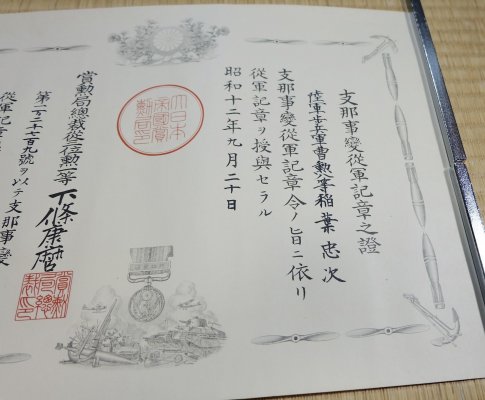 支那事變從軍記章之證
陸軍歩兵軍曹勲八等稲葉忠次
支那事變從軍記章令ノ旨ニ依リ
從軍記章ヲ授與セラル
昭和十二年九月二十日
大日本帝國賞勲局印
賞勲局總裁從位勲等下條康麿
賞勲局總裁印
號ヲ以テ支那事變
從軍記章